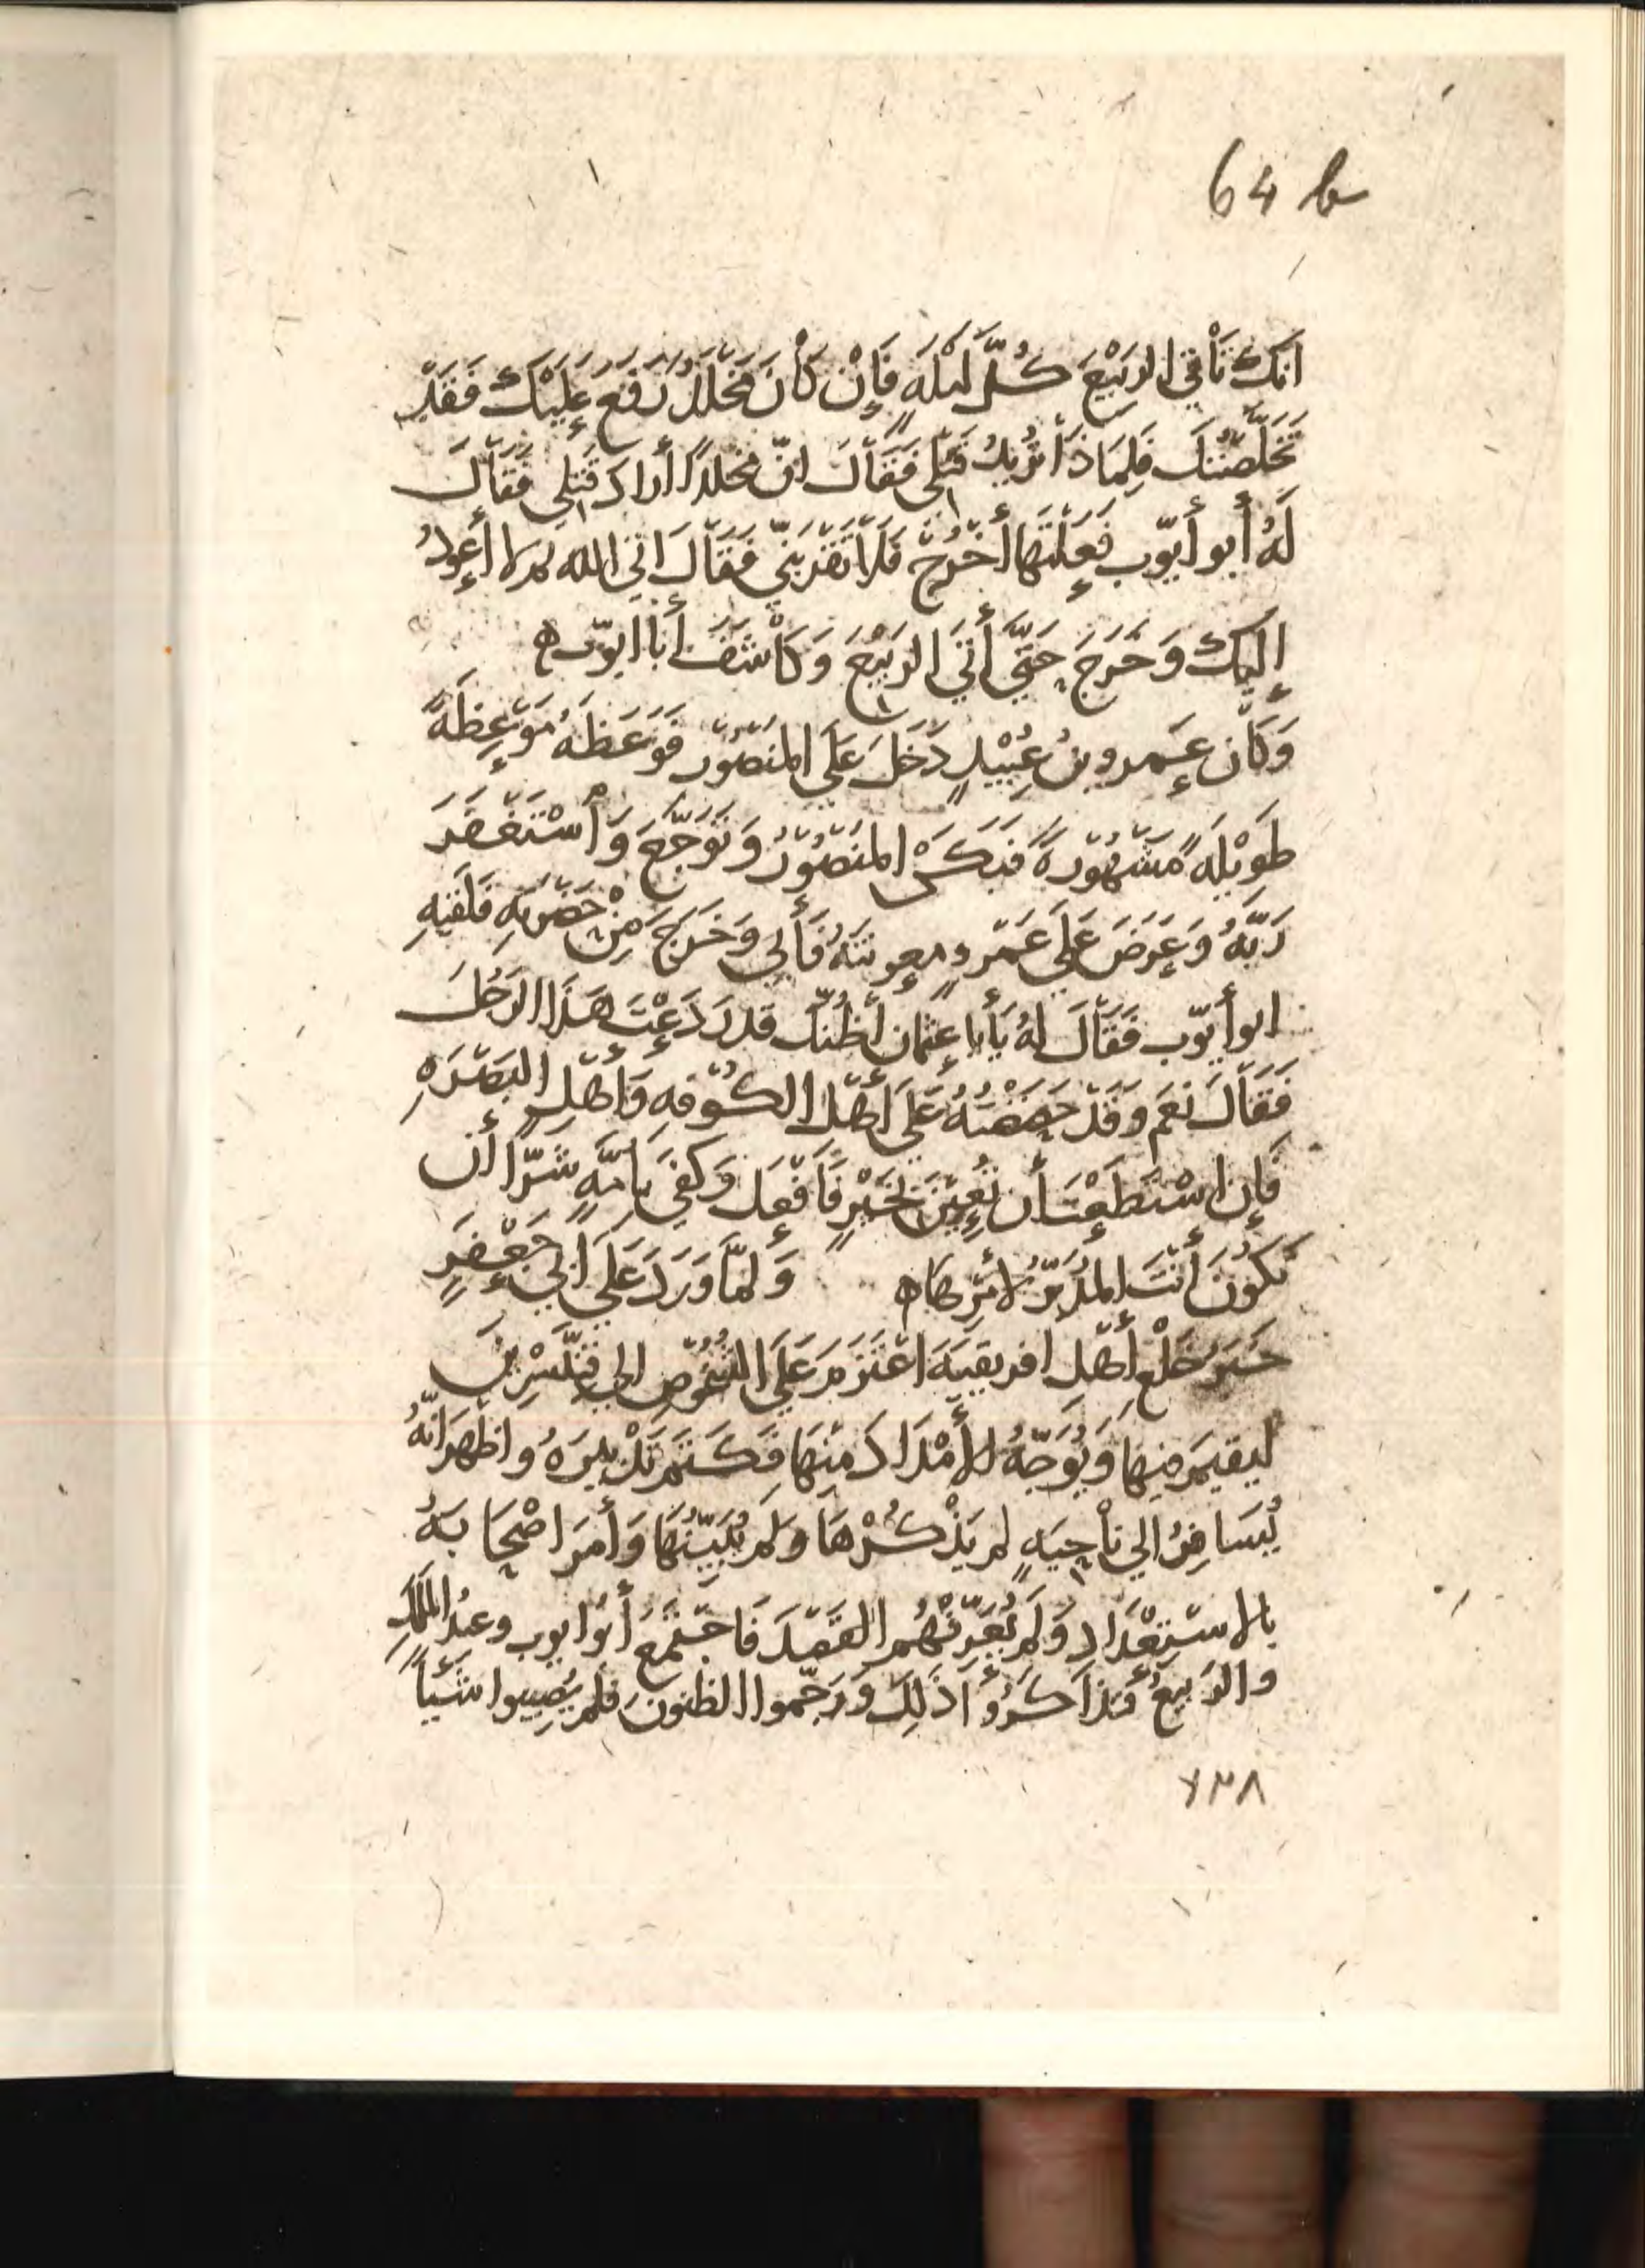 64 b
انّك تَأتي الرَبيْعَ كُلَّ ليْلَهٍ فَإِنْ كَانَ مَخْلَدٌ رَفَعَ عَلَيْكَ فَقَدْ
تَخَلَّصْتُكَ فَلِمَاذَا تُرِيدُ قَتْلي فَقَالَ انّ مخلدًا أراد قَتْلي فَقَالَ
لَهُ أبو أيّوب فَعَلْتَها أُخْرُجْ فَلَا تَقْرَبنّي فَقَالَ انّي والله لا أعودُ
إليك وَخَرَجَ حَتّي أتَي الرَبيْعَ وَكَاشَفَ أبا ايوّب ه
وَكَان عَمرو بنُ عُبَيْدٍ دَخَلَ عَلَى المنْصُوْر فَوَعَظَهُ مَوْعِظَةً
طَوِيْلَهً مَشْهُوْرهً فَبَكَى المنْصُوْرُ وَتَوَجَّعَ وَاسْتَغْفَرَ
رَبَّهُ وَعَرَضَ عَلَي عَمْرٍو معونتَهُ فَأبي وَخَرجَ مِنْ حَضْرتِهِ فَلَقيهِ
ابو أيّوب فَقَالَ لهُ يَأبا عثمان أظُنّك قد رَدَعْتَ هَذَا الرَجُلَ
فَقَالَ نَعَم وَقَدْ حَضَضْتُهُ عَلَي أهْل الكُوْفهِ وَأهْلِ البَصْرَهِ
فَإن اسْتَطَعْتَ أن تُعِيْنَ بخَيْرٍ فَافْعَل وَكَفَي بأمّهٍ شَرًّا أن
تَكُونَ أنْتَ المدَبّرُ لأمْرِهَا ه وَلمّا وَرَدَ عَلَي ابي جَعْفَرٍ
خَبَرُ خَلْعِ أهْلِ افريقيَهَ اعْتَزَمَ عَلَي الشُّخُوْصِ الي قِنَّسْرِيْنَ
ليقيمَ فيها وَيُوَجّهُ الأمْدَادَ مِنهَا فَكَتَمَ تَدْبيرَهُ واظهَرَ انّهُ
يُسَافِرُ الي نَاحِيَهٍ لم يَذْكُرْهَا وَلم يُبَيّنْهَا وَأمَرَ اصْحَابَهُ
بالاسْتِعْدَادِ وَلَم يُعَرِّفْهُم القَصْدَ فَاجْتَمَعَ أبو ايوب وعبدُ المَلَكِ
والرَبيعُ فَتَذَاكَرُوا ذَلِكَ وَرَجّموا الظنونَ فلم يُصِيبوا شَيْأً
١٢٨